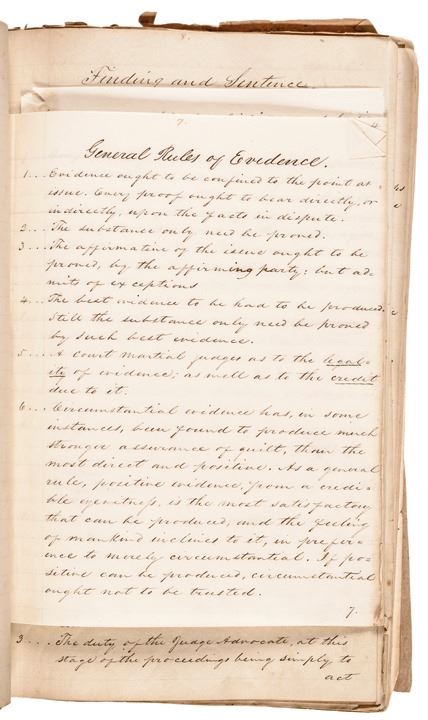 8.
Finding and Sentence.
7.
General Rules of Evidence.
1... Evidence ought to be confined to the point at
issue. Every proof ought to bear directly, or
indirectly, upon the facts in dispute.
2... The substance only need be proved.
3... The affirmative of the issue ought to be
proved, by the affirming party: but ad-
mits of exceptions
4... The best evidence to be had to be produced.
Still the substance only need be proved
by such best evidence.
5... A court martial judges as to the legal-
ity of evidence; as well as to the credit
due to it.
6... Circumstantial evidence has, in some
instances, been found to produce much
stronger assurance of guilt, than the
most direct and positive. As a general
rule, positive evidence, from a credi-
ble eyewitness, is the most satisfactory
that can be produced, and the feeling
of mankind inclines to it, in prefer-
ence to merely circumstantial. If po-
sitive can be produced, circumstantial
ought not to be trusted.
7.
3... The duty of the Judge Advocate, at this
stage of the proceedings being simply to
act